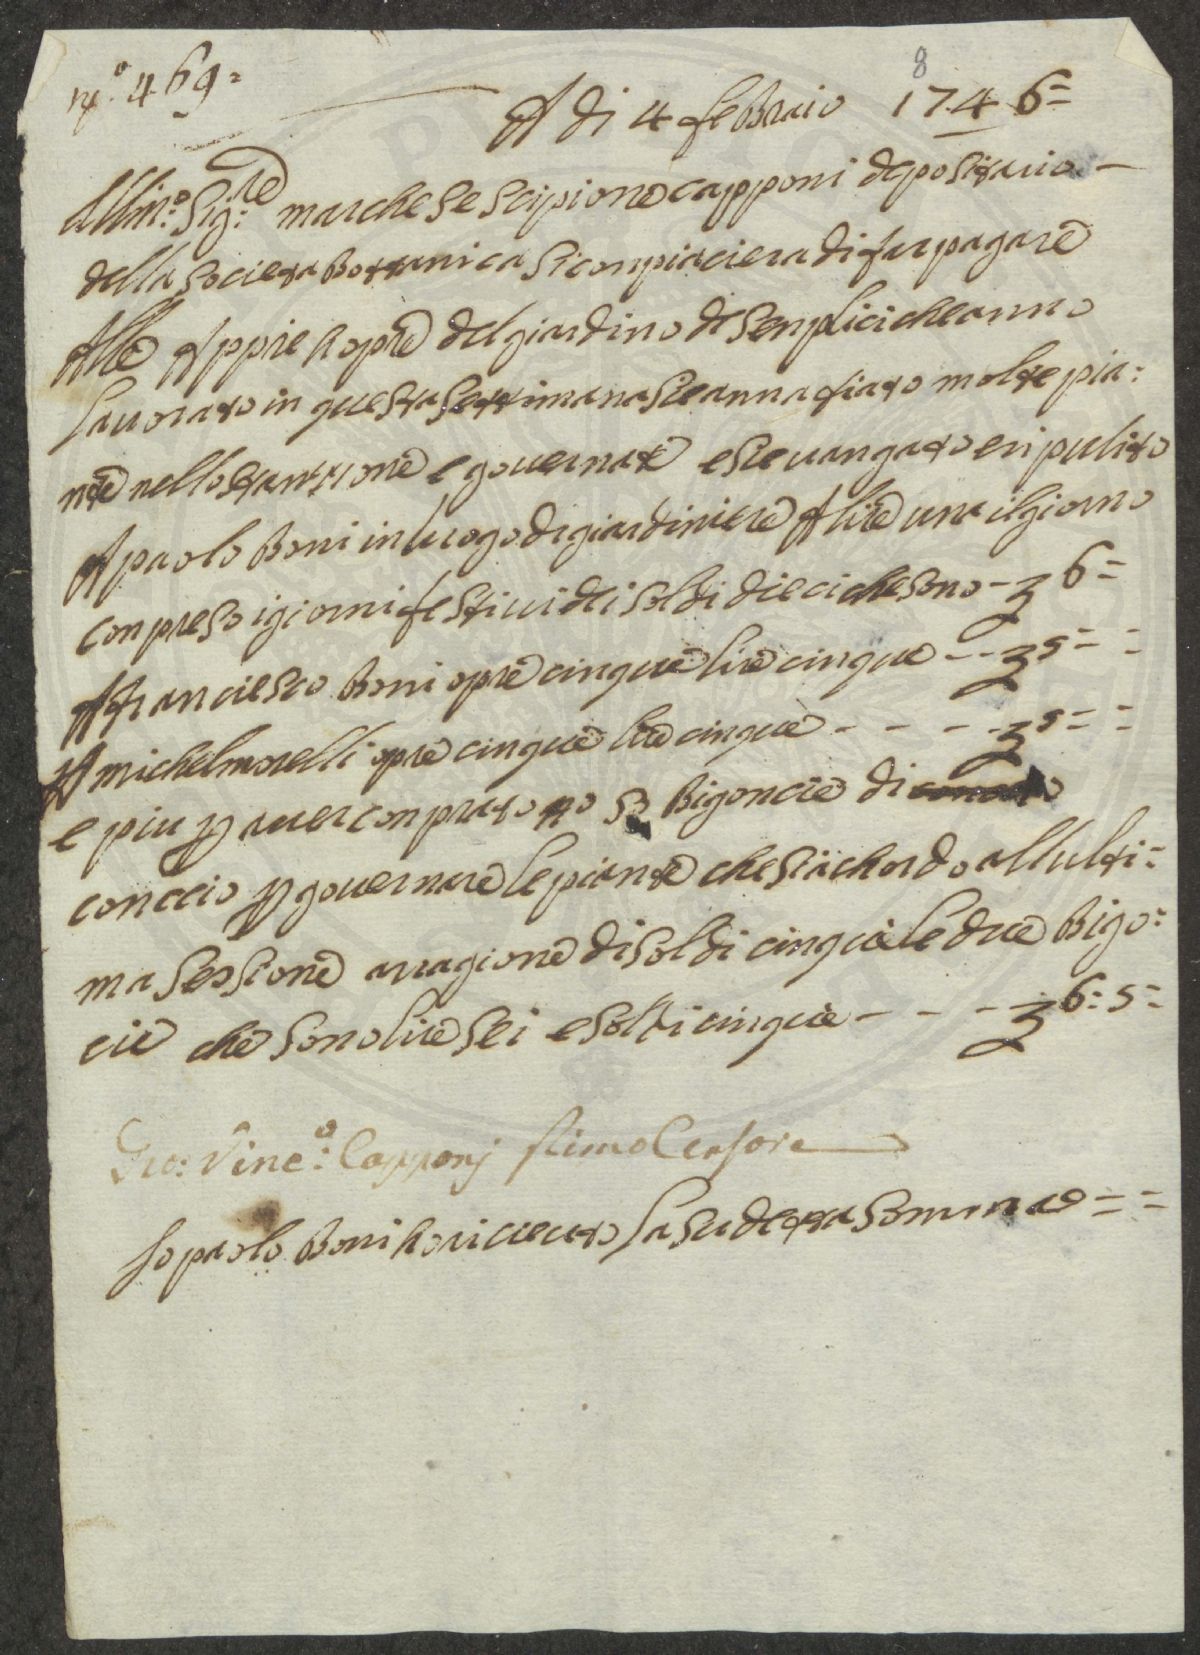 N.º 469=
8
A di 4 febbraio 1746=
Illm.º Sig:re marchese scipione capponi depositario –
della societa bottanica si conpiaciera di far pagare
Alle Appie hopre del giardino de senplici che anno
lauorato in questa settimana sie anna fiato molte pia:
nte nello stantione e gouernate e sie uangato e ripulito
A paolo boni in luogo di giardiniere A lire una il giorno
conpreso i giorni festiui dei soldi dieci che sono – 6=
A franciesco boni opre cinque lire cinque - - 5= =
A michel morelli opre cinque lire cinque - - - - 5= =
e piu p auer conprato no 50 bigoncie di
conccio p gouernare le piante che si achordo all ulti=
ma sessione arragione di soldi cinque le due bigo=
cie che sono lire sei e soldi cinque - - - 6: 5=
Gio: Vinc.º: Capponj Primo Censore
Io paolo boni ho riceuuto la sudetta somma = =